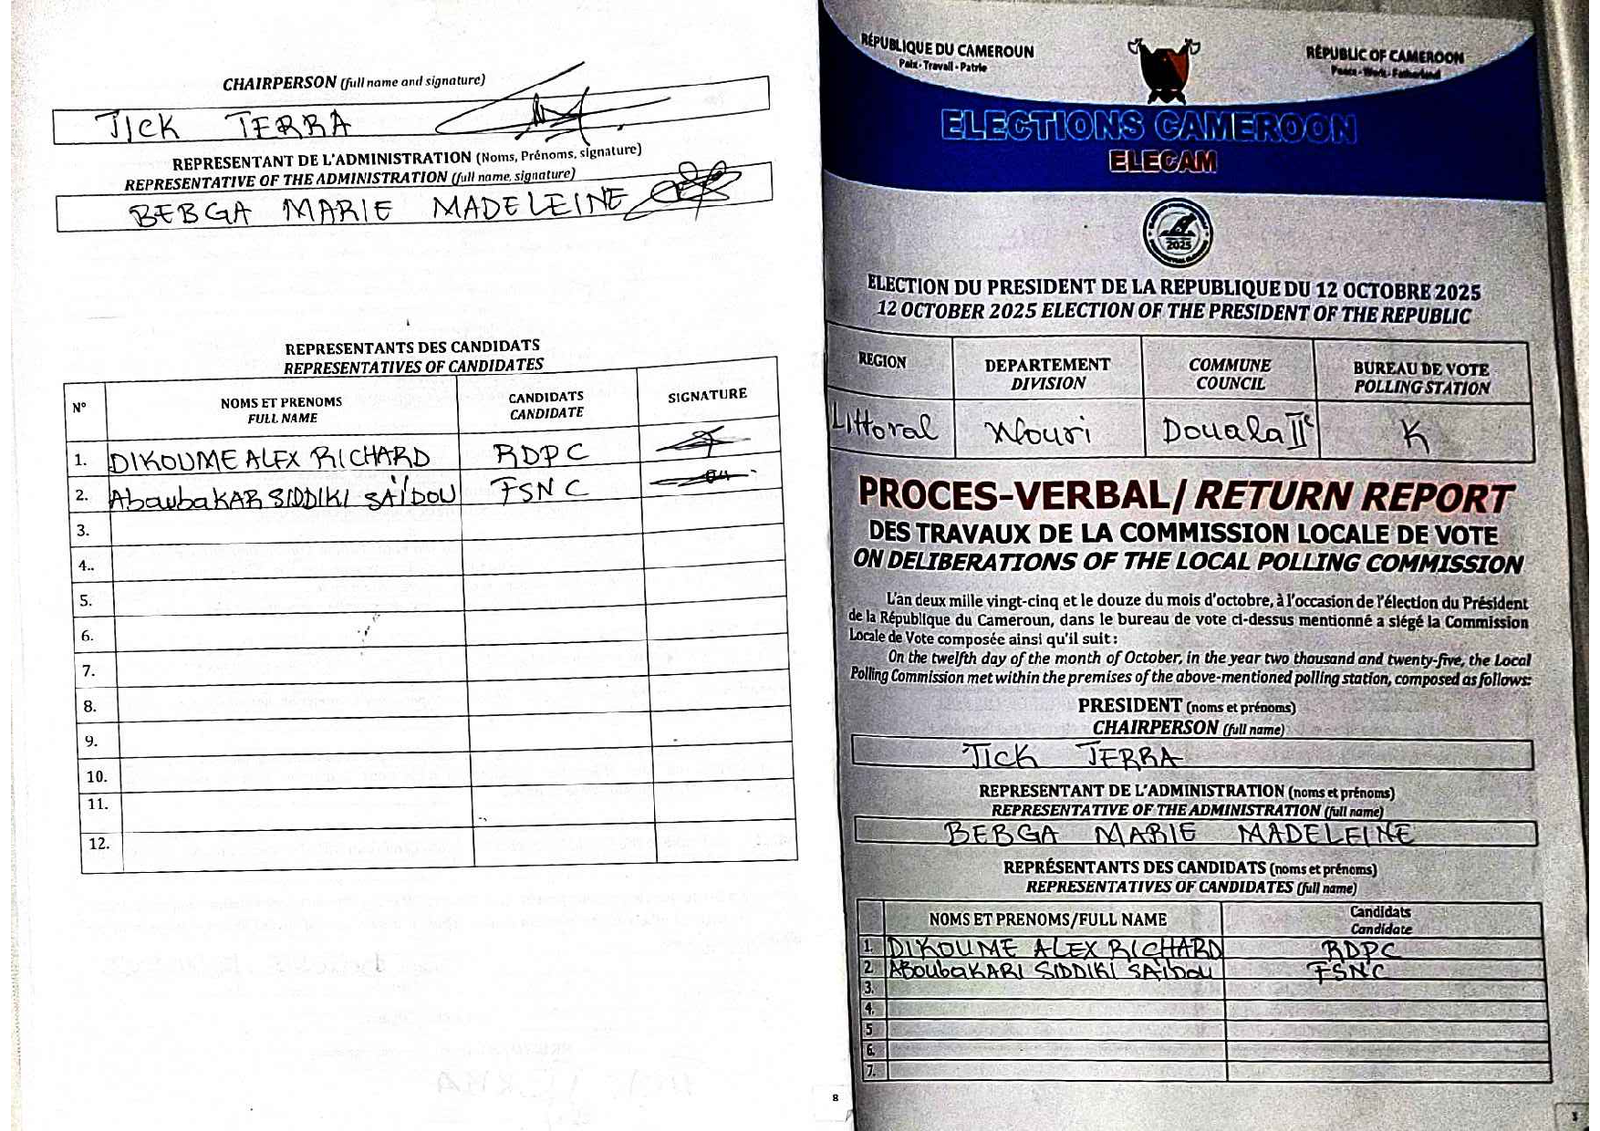 CHAIRPERSON (full name and signature)
TICK TERRA
REPRESENTANT DE L'ADMINISTRATION (Noms, Prénoms, signature)
REPRESENTATIVE OF THE ADMINISTRATION (full name, signature)
BEBGA MARIE MADELEINE
REPRESENTANTS DES CANDIDATS
REPRESENTATIVES OF CANDIDATES
N° NOMS ET PRENOMS FULL NAME CANDIDATS CANDIDATE SIGNATURE
1. DIKOUME ALEX RICHARD RDPC
2. AboubaKAR SIDDIKI SAÏDOU FSNC
3.
4..
5.
6.
7.
8.
9.
10.
11.
12.
8
RÉPUBLIQUE DU CAMEROUN
Paix - Travail - Patrie
REPUBLIC OF CAMEROON
Peace - Work - Fatherland
ELECTIONS CAMEROON
ELECAM
2025
ELECTION DU PRESIDENT DE LA REPUBLIQUE DU 12 OCTOBRE 2025
12 OCTOBER 2025 ELECTION OF THE PRESIDENT OF THE REPUBLIC
REGION DEPARTEMENT DIVISION COMMUNE COUNCIL BUREAU DE VOTE POLLING STATION
Littoral Wouri Douala IIe K
PROCES-VERBAL/ RETURN REPORT
DES TRAVAUX DE LA COMMISSION LOCALE DE VOTE
ON DELIBERATIONS OF THE LOCAL POLLING COMMISSION
L'an deux mille vingt-cinq et le douze du mois d'octobre, à l'occasion de l'élection du Président
de la République du Cameroun, dans le bureau de vote ci-dessus mentionné a siégé la Commission
Locale de Vote composée ainsi qu'il suit :
On the twelfth day of the month of October, in the year two thousand and twenty-five, the Local
Polling Commission met within the premises of the above-mentioned polling station, composed as follows:
PRESIDENT (noms et prénoms)
CHAIRPERSON (full name)
TICK TERRA
REPRESENTANT DE L'ADMINISTRATION (noms et prénoms)
REPRESENTATIVE OF THE ADMINISTRATION (full name)
BEBGA MARIE MADELEINE
REPRÉSENTANTS DES CANDIDATS (noms et prénoms)
REPRESENTATIVES OF CANDIDATES (full name)
NOMS ET PRENOMS/FULL NAME Candidats Candidate
1. DIKOUME ALEX RICHARD RDPC
2. AboubaKARI SIDDIKI SAÏDOU FSNC
3.
4.
5
6.
7.